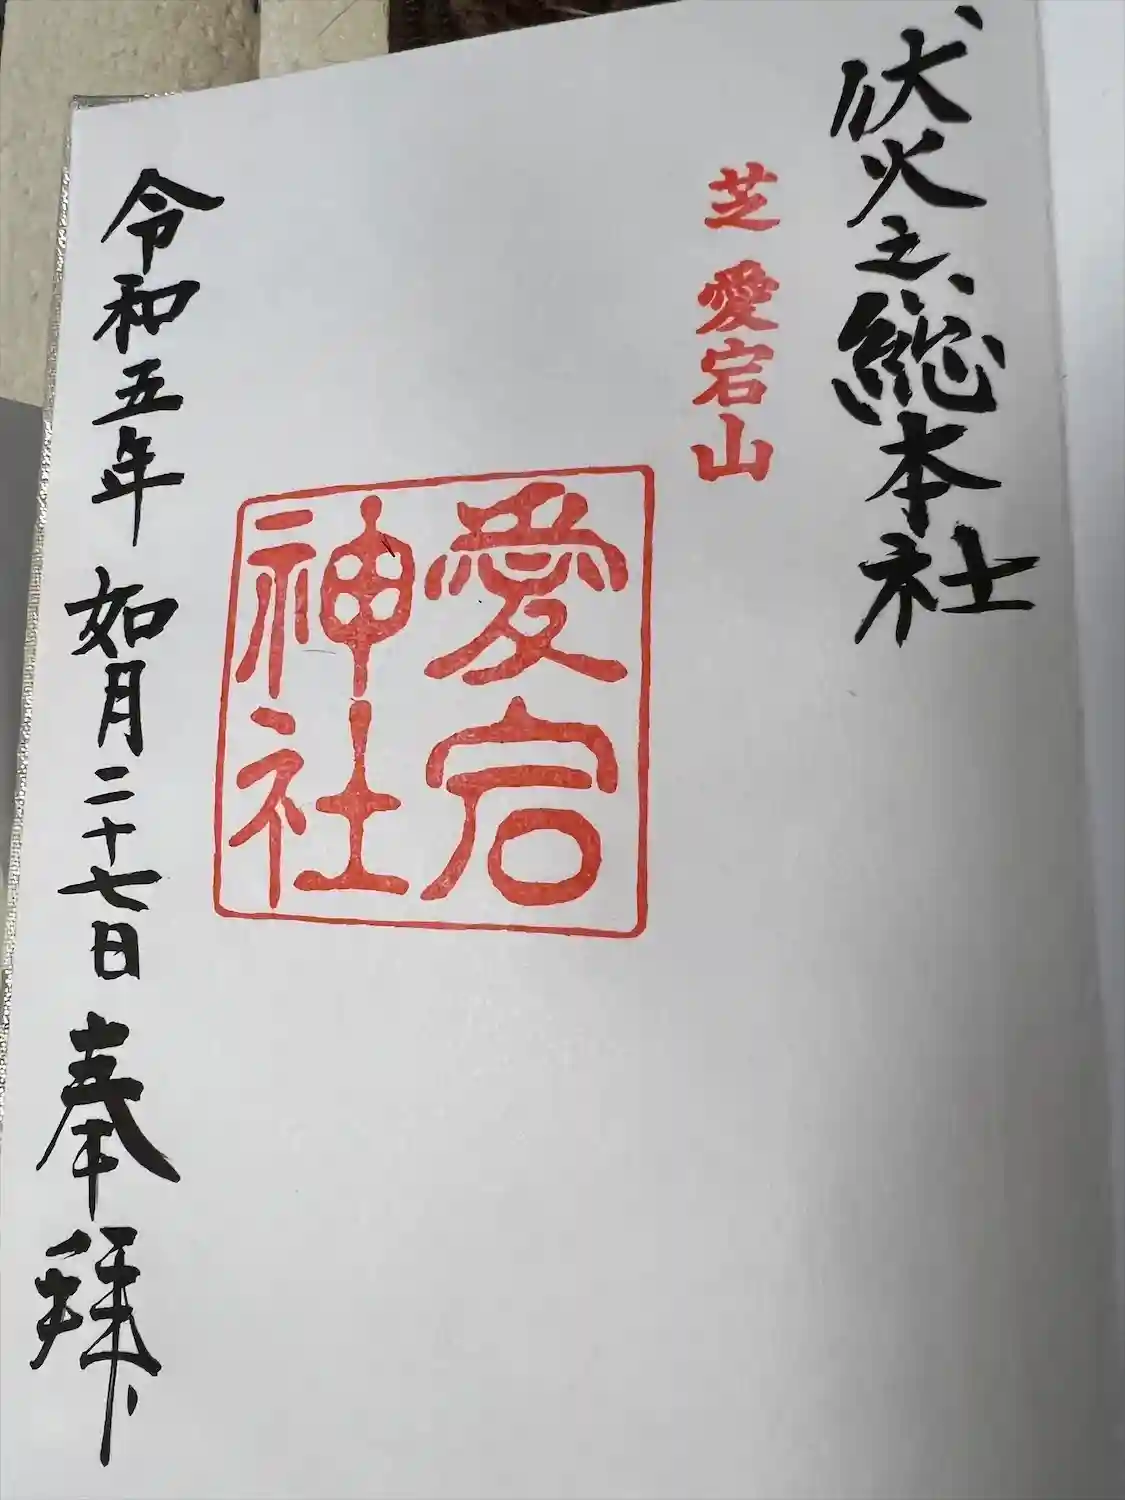 伏火之総本社
芝 愛宕山
愛宕
神社
令和五年 如月二十七日 奉拜